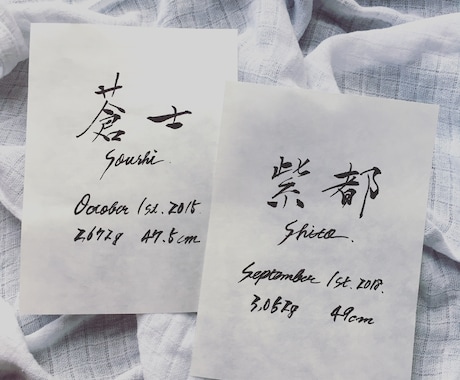 蒼士
Soushi.
October 1st. 2015
2,672g 47.5cm
紫都
Shito.
September 1st. 2018.
3,052g 49cm